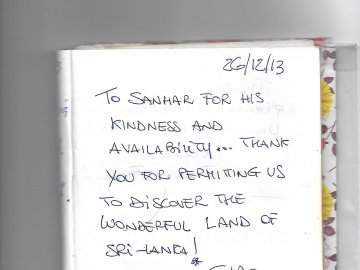 26/12/13
TO SANHAR FOR HIS
KINDNESS AND
AVAILABILITY... THANK
YOU FOR PERMITING US
TO DISCOVER THE
WONDERFUL LAND OF
SRI-LANKA!